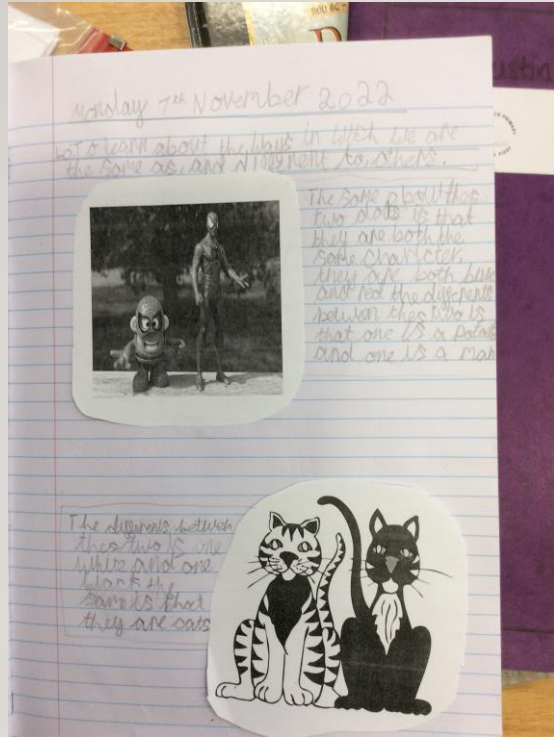 Monday 7th November 2022
LO: To learn about the ways in wich we are
the same as, and different to, others.
The same about thes
two dolls is that
they are both the
same character.
they are both blue
and red the differents
betwen thes two is
that one is a potato
and one is a man
The differents betwen
thes two is one
white and one
black the
same is that
they are cats
ustin